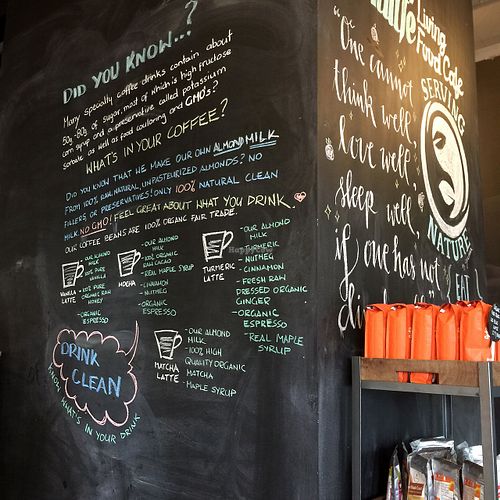 DID YOU KNOW...?
Many specialty coffee drinks contain about
50g-80g of sugar, most of which is high fructose
corn syrup and a preservative called potassium
sorbate as well as food colouring and GMOs?
WHAT'S IN YOUR COFFEE?
DID YOU KNOW THAT WE MAKE OUR OWN ALMOND MILK
FROM 100% RAW, NATURAL, UNPASTEURIZED ALMONDS? NO
FILLERS OR PRESERVATIVES! ONLY 100% NATURAL CLEAN
MILK NO GMO! FEEL GREAT ABOUT WHAT YOU DRINK.
OUR COFFEE BEANS ARE 100% ORGANIC FAIR TRADE.
VANILLA
LATTE
- OUR ALMOND
MILK
- 100% PURE
VANILLA
- 100% PURE
ORGANIC RAW
HONEY
- ORGANIC
ESPRESSO
MOCHA
- OUR ALMOND
MILK
- 100% ORGANIC
RAW CACAO
- REAL MAPLE SYRUP
- CINNAMON
- NUTMEG
- ORGANIC
ESPRESSO
TURMERIC
LATTE
- OUR ALMOND
MILK
- TURMERIC
- NUTMEG
- CINNAMON
- FRESH RAW
PRESSED ORGANIC
GINGER
- ORGANIC
ESPRESSO
- REAL MAPLE
SYRUP
MATCHA
LATTE
- OUR ALMOND
MILK
- 100% HIGH
QUALITY ORGANIC
MATCHA
- MAPLE SYRUP
DRINK
CLEAN
KNOW WHAT'S IN YOUR DRINK
"One cannot
think well,
love well,
sleep well,
if one has not
Living
Food Cafe
SERVING
NATURE
EAT